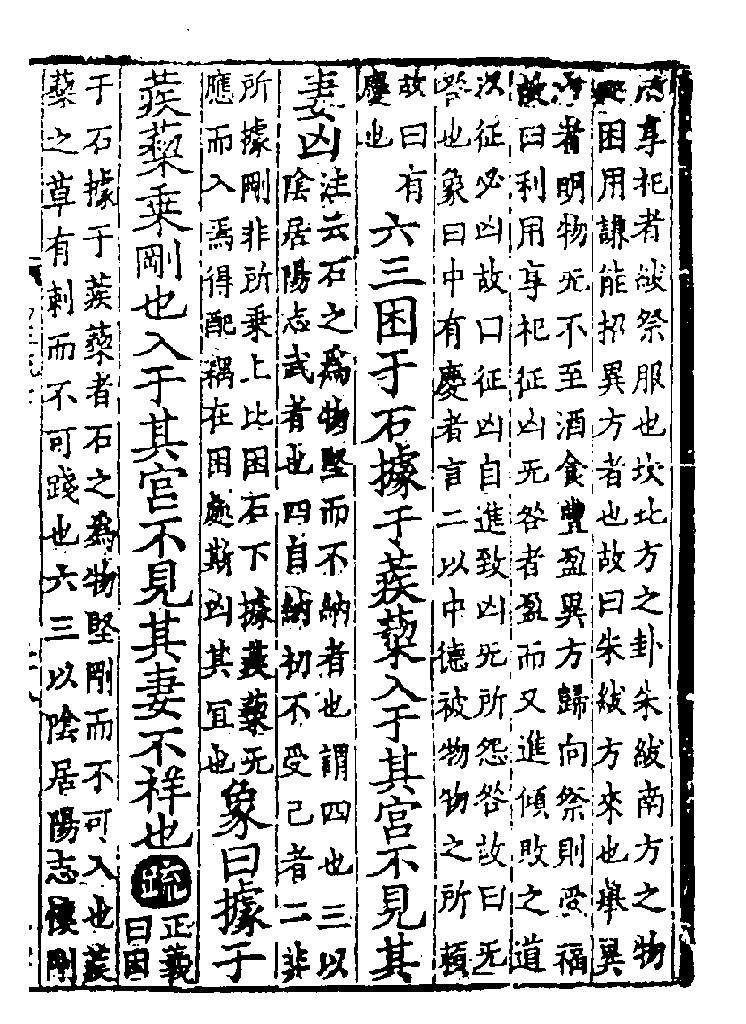 用享祀者紱祭服也坎北方之卦朱紱南方之物
處困用謙能招異方者也故曰朱紱方來也舉異
方者明物无不至酒食豐盈異方歸向祭則受福
故曰利用享祀征凶无咎者盈而又進傾敗之道
以征必凶故曰征凶自進致凶无所怨咎故曰无
咎也象曰中有慶者言二以中德被物物之所賴
故曰有
慶也
六三困于石據于蒺蔾入于其宮不見其
妻凶
注云石之為物堅而不納者也謂四也三以
陰居陽志武者也四自納初不受己者二非
所據剛非所乘上比困石下據蒺蔾无
應而入焉得配耦在困處斯凶其冝也
象曰據于
蒺蔾乘剛也入于其宮不見其妻不祥也疏
正義
曰困
于石據于蒺蔾者石之為物堅剛而不可入也蒺
蔾之草有刺而不可踐也六三以陰居陽志懷剛